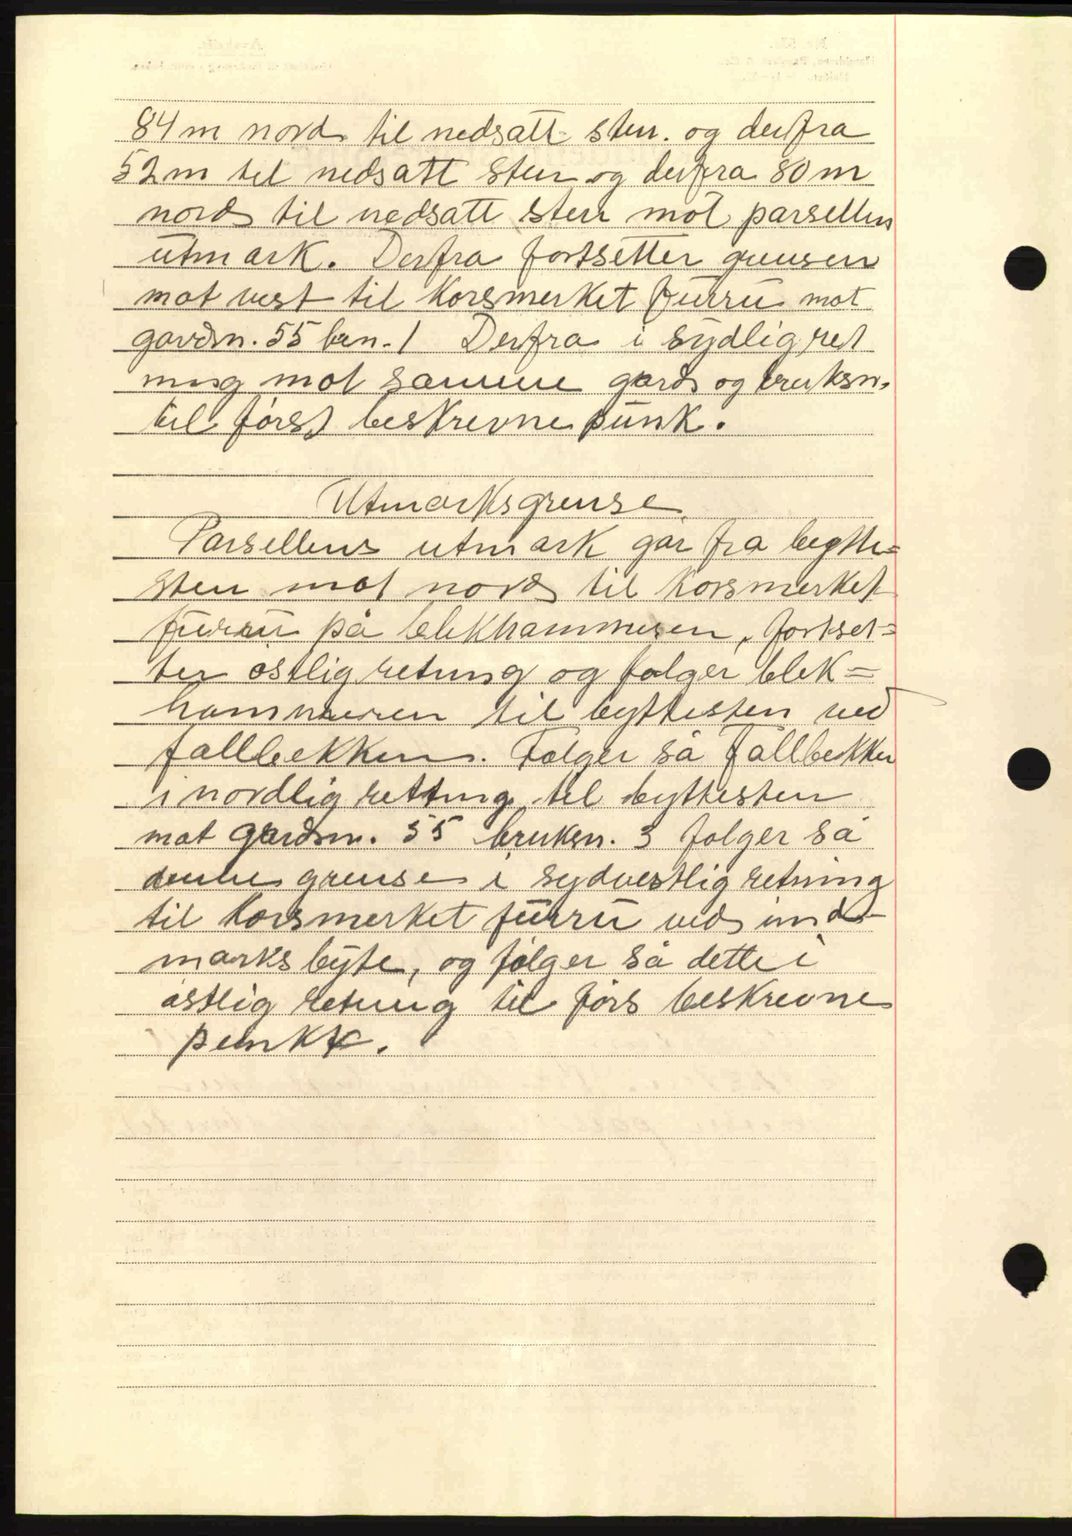 84 m nord til nedsatt sten. og derfra
52 m til nedsatt sten og derfra 80 m
nord til nedsatt sten mot parsellens
utmark. Derfra fortsetter grensen
mot vest til Korsmerket furru mot
gardsn. 55 brn. 1 Derfra i sydlig ret
ning mot samme gards og bruksn.
til først beskrevne punk.
Utmarksgrense
Parsellens utmark går fra bytte=
sten mot nord til Korsmerket
furru på blekhammeren, fortset=
ter østlig retning og følger blek=
hammeren til byttesten ved
fallbekken. Følger så Fallbekken
i nordlig retting til byttesten
mot gardsn. 55 bruksn. 3 følger så
denne grense i sydvestlig retning
til Korsmerket furru ved ind-
marks byte, og følger så dette i
østlig retning til førs beskrevne
punkt.